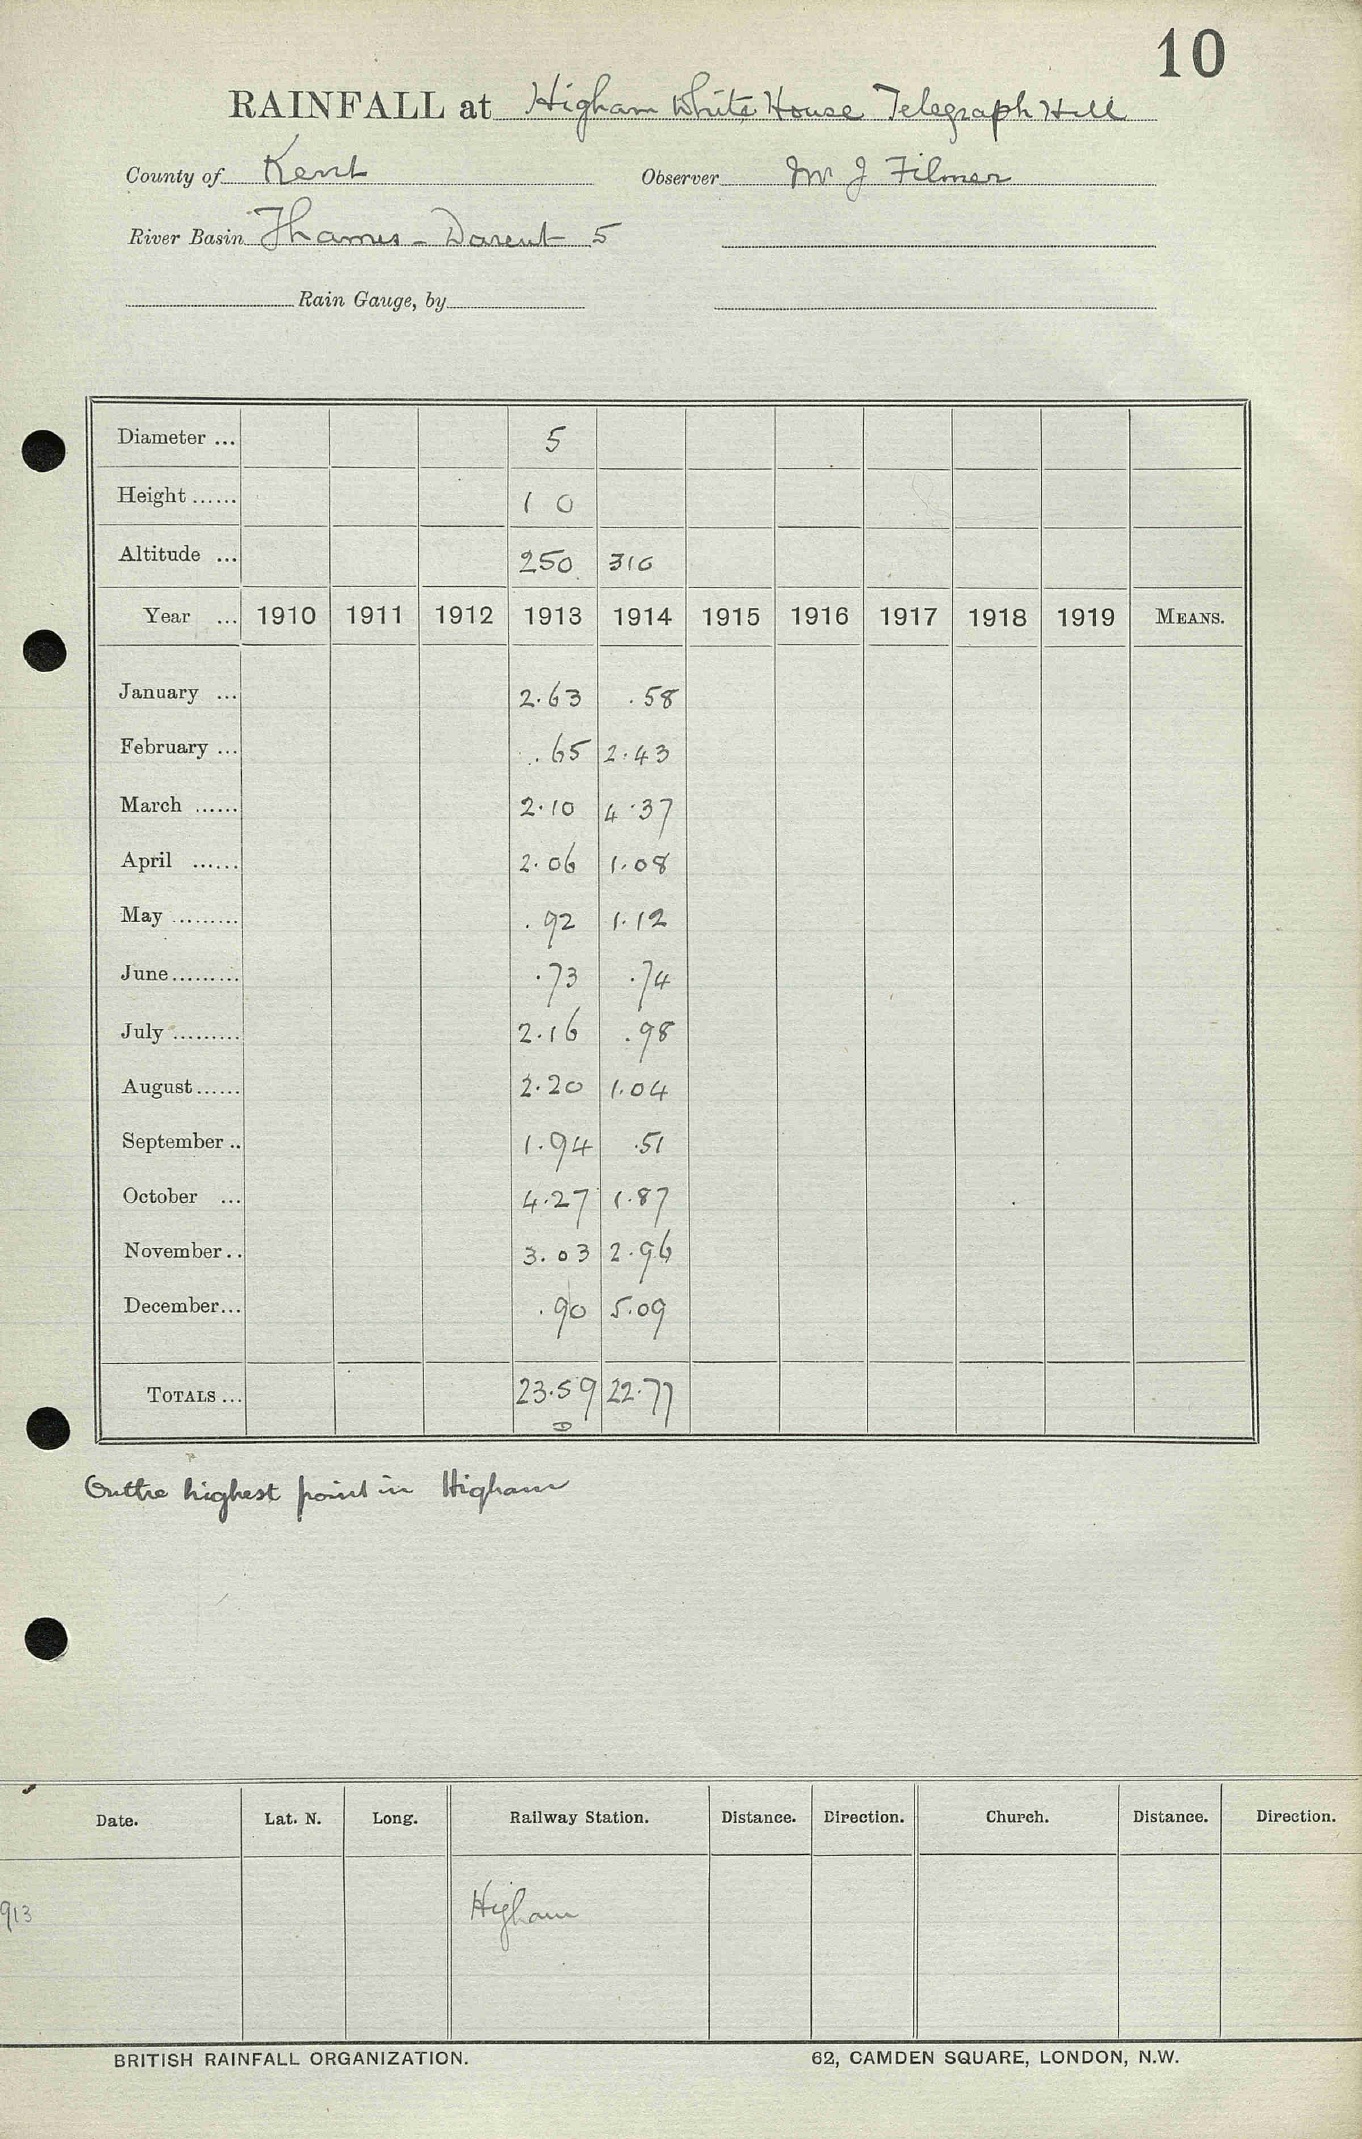 10
RAINFALL at Higham White House Telegraph Hill
County of Kent Observer Mr J Filmer
River Basin Thames - Darent 5
Rain Gauge, by
Diameter ... 5
Height ...... 1 0
Altitude ... 250 310
Year ... 1910 1911 1912 1913 1914 1915 1916 1917 1918 1919 MEANS.
January ... 2.63 .58
February ... .65 2.43
March ...... 2.10 4.37
April ...... 2.06 1.08
May ......... .92 1.12
June......... .73 .74
July ......... 2.16 .98
August...... 2.20 1.04
September .. 1.94 .51
October ... 4.27 1.87
November.. 3.03 2.96
December... .90 5.09
TOTALS ... 23.59 22.77
On the highest point in Higham
Date. Lat. N. Long. Railway Station. Distance. Direction. Church. Distance. Direction.
913 Higham
BRITISH RAINFALL ORGANIZATION. 62, CAMDEN SQUARE, LONDON, N.W.